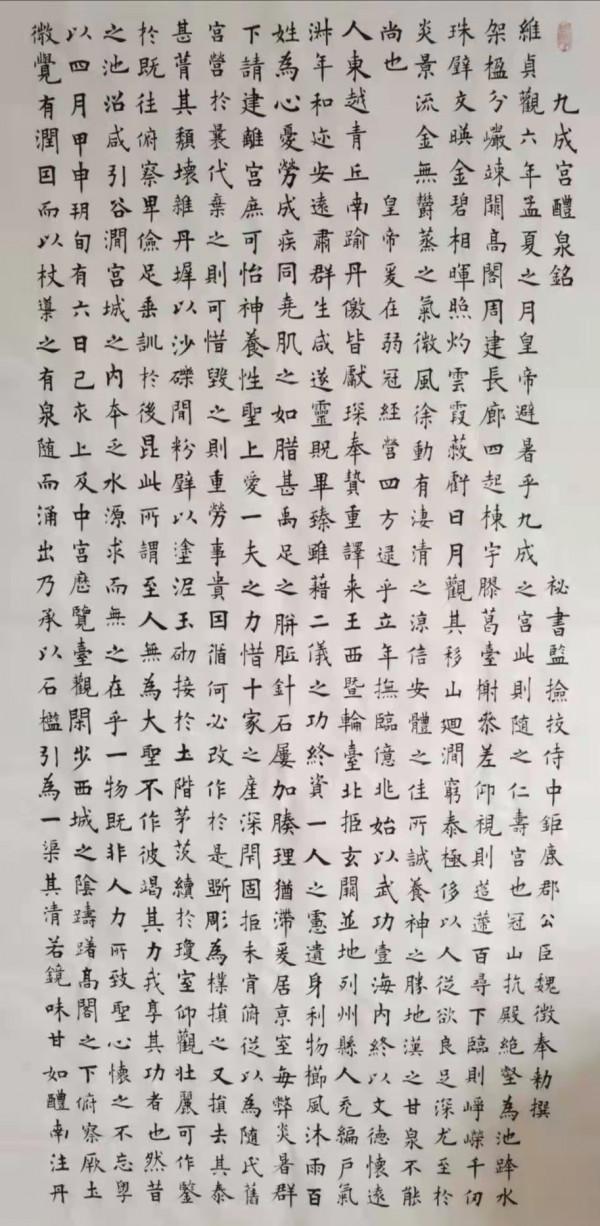 九成宮醴泉銘
秘書監撿挍侍中鉅鹿郡公臣魏徵奉勑撰
維貞觀六年孟夏之月皇帝避暑乎九成之宮此則隨之仁壽宮也冠山抗殿絶壑為池跨水
架楹分巖竦闕高閣周建長廊四起棟宇膠葛臺榭叅差仰視則迢遰百尋下臨則崢嶸千仞
珠璧交暎金碧相暉照灼雲霞蔽虧日月觀其移山迴澗窮泰極侈以人從欲良足深尤至於
炎景流金無欝蒸之氣微風徐動有淒清之涼信安體之佳所誠養神之勝地漢之甘泉不能
尚也 皇帝爰在弱冠経營四方逮乎立年撫臨億兆始以武功壹海內終以文德懷遠
人東越青丘南踰丹儌皆獻琛奉贄重譯来王西曁輪臺北拒玄闕並地列州縣人充編戶氣
淑年和迩安遠肅群生咸遂靈貺畢臻雖藉二儀之功終資一人之慮遺身利物櫛風沐雨百
姓為心憂勞成疾同堯肌之如腊甚禹足之胼胝針石屢加腠理猶滯爰居京室每弊炎暑群
下請建離宮庶可怡神養性聖上愛一夫之力惜十家之産深閇固拒未肯俯從以為隨氏舊
宮營於曩代棄之則可惜毀之則重勞事貴因循何必改作於是斲彫為樸損之又損去其泰
甚葺其頹壞雜丹墀以沙礫間粉壁以塗泥玉砌接於土階茅茨續於瓊室仰觀壮麗可作鑒
於既往俯察卑儉足垂訓於後昆此所謂至人無為大聖不作彼竭其力我享其功者也然昔
之池沼咸引谷澗宮城之內本乏水源求而無之在乎一物既非人力所致聖心懷之不忘粵
以四月甲申玥旬有六日己亥上及中宮歷覽臺觀閑步西城之陰躊躇高閣之下俯察厥土
微覺有潤因而以杖導之有泉随而涌出乃承以石檻引為一渠其清若鏡味甘如醴南注丹